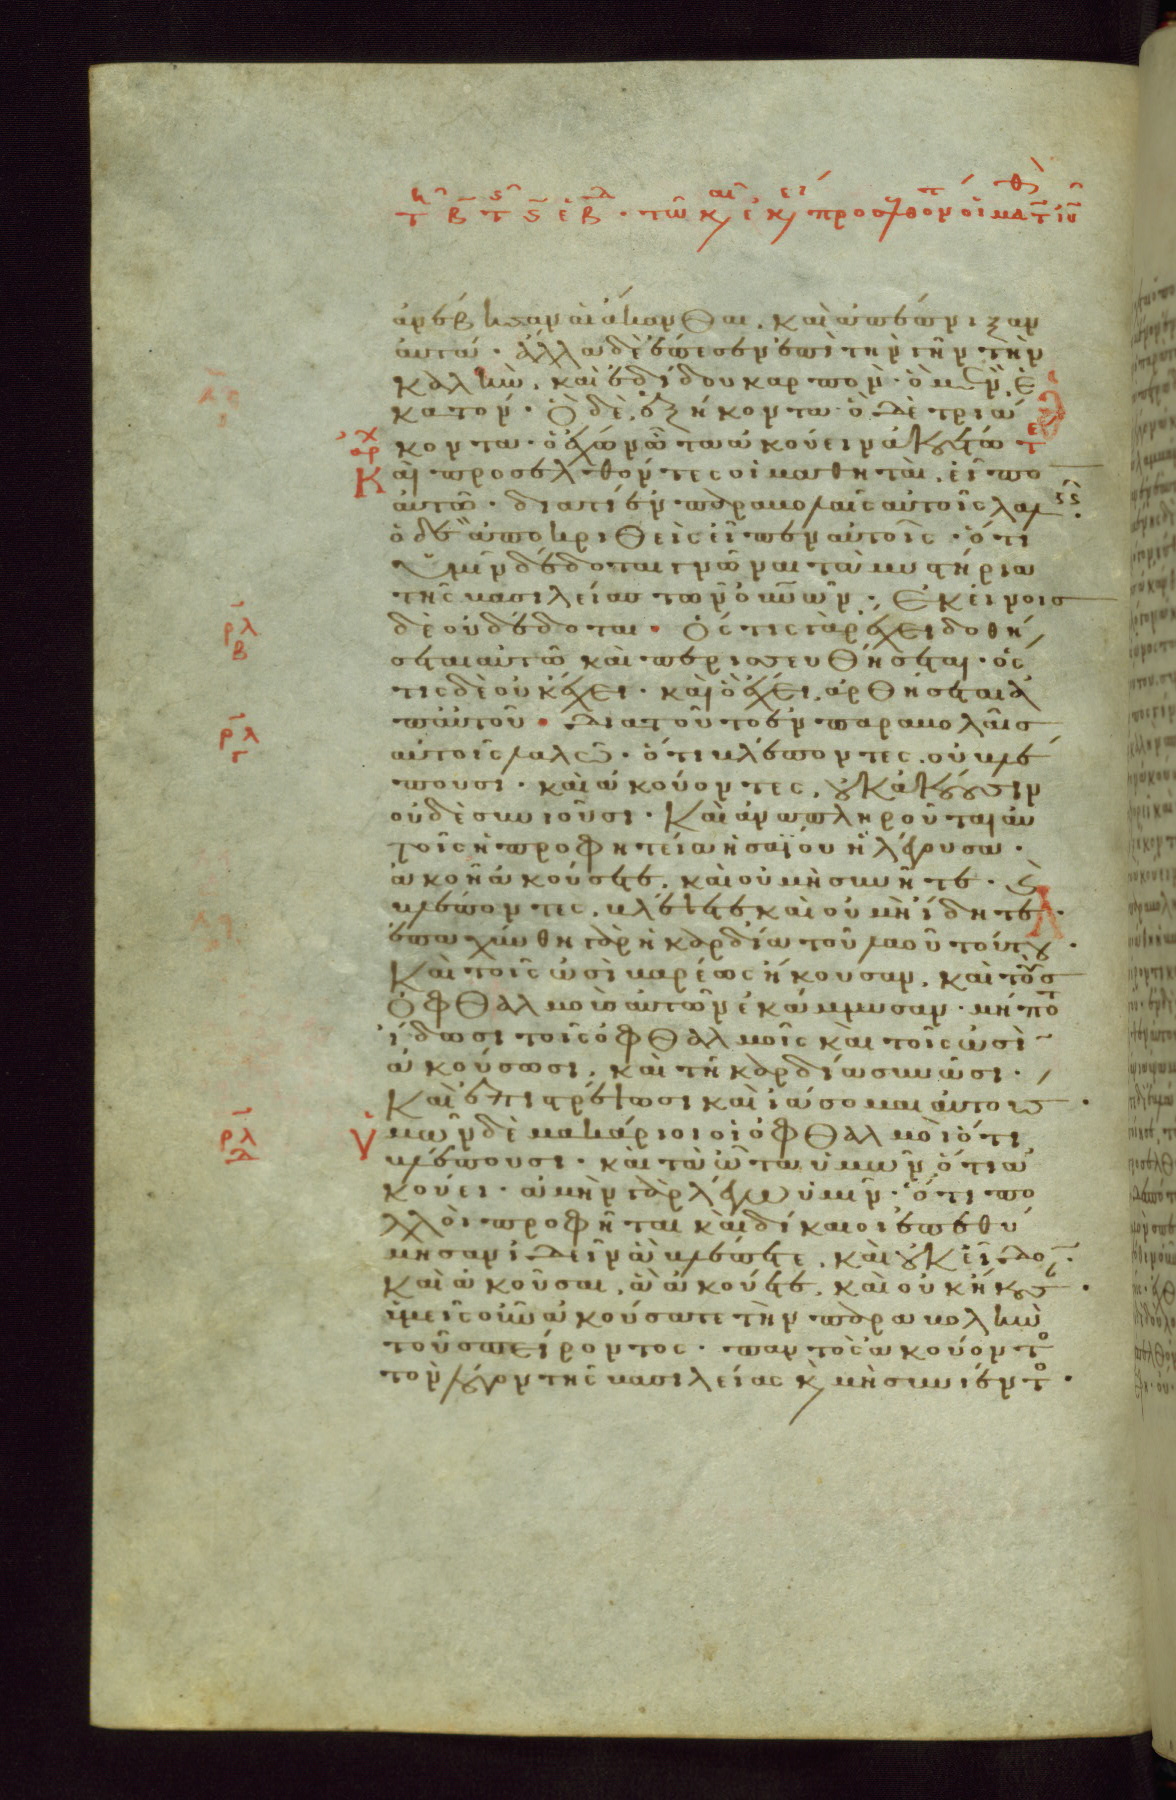 ἀνέβησαν αἱ ἄκανθαι. καὶ ἀπέπνιξαν
αὐτά. ἄλλα δὲ ἔπεσεν ἐπὶ τὴν γῆν τὴν
καλὴν. καὶ ἐδίδου καρπὸν. ὁ μὲν ἑ
κατόν. ὁ δὲ ἑξήκοντα. ὁ δὲ τριά
κοντα. ὁ ἔχων ὦτα ἀκούειν ἀκουέτω
Καὶ προσελθόντες οἱ μαθηταὶ. εἶπο
αὐτῶ. διατί ἐν παραβολαῖς αὐτοῖς λα
ὁ δὲ ἀποκριθεὶς εἶπεν αὐτοῖς. ὅτι
ὑμῖν δέδοται γνῶναι τὰ μυστήρια
τῆς βασιλείας τῶν οὐνῶν. ἐκείνοις
δὲ οὐ δέδοται. ὅστις γὰρ ἔχει δοθή
σεται αὐτῶ καὶ περισσευθήσεται. ὅς
τις δὲ οὐκ ἔχει. καὶ ὃ ἔχει ἀρθήσεται ἀ
π᾽ αὐτοῦ. Διατοῦτο ἐν παραβολαῖς
αὐτοῖς λαλῶ. ὅτι βλέποντες. οὐ βλέ
πουσι. καὶ ἀκούοντες, οὐκ ἀκούουσιν
οὐδὲ συνιοῦσι. Καὶ ἀναπληροῦται αὐ
τοῖς ἡ προφητεία ἡσαΐου ἡ λέγουσα.
ἀκοῆ ἀκούσετε. καὶ οὐ μὴ συνῆτε. καὶ
βλέποντες. βλέψετε καὶ οὐ μὴ ἴδητε.
ἐπαχύνθη γὰρ ἡ καρδία τοῦ λαοῦ τούτου.
Καὶ τοῖς ὠσὶ βαρέως ἤκουσαν. καὶ τοὺς
ὀφθαλμοὺς αὐτῶν ἐκάμμυσαν. μήποτ
ἴδωσι τοῖς ὀφθαλμοῖς καὶ τοῖς ὠσὶ
ἀκούσωσι. καὶ τῆ καρδία συνῶσι.
Καὶ ἐπιστρέψωσι καὶ ἰάσομαι αὐτους.
Ὑμῶν δὲ μακάριοι οἱ ὀφθαλμοὶ ὅτι
βλέπουσι. καὶ τὰ ὦτα ὑμῶν ὅτι ἀ
κούει. ἀμὴν γὰρ λέγω ὑμῖν. ὅτι πο
λλοὶ προφῆται καὶ δίκαιοι ἐπεθύ
μησαν ἰδεῖν ἃ βλέπετε. καὶ οὐκ εἶδο.
καὶ ἀκοῦσαι. ἃ ἀκούετε. καὶ οὐκ ἤκουσ.
ὑμεῖς οὖν ἀκούσατε τὴν παραβολὴν
τοῦ σπείροντος. παντὸς ἀκούοντο
τὸν λόγον τῆς βασιλείας κ̀ μὴ συνιέντο.
ρλβ
ρλγ
ρλδ